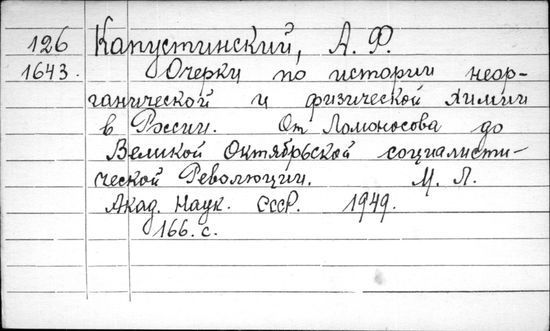 126 Капустинский, А. Ф.
1643. Очерки по истории неор-
ганической и физической химии
в России. От Ломоносова до
Великой Октябрьской социалисти-
ческой Революции. М. Л.
Акад. Наук. СССР. 1949.
166. с.